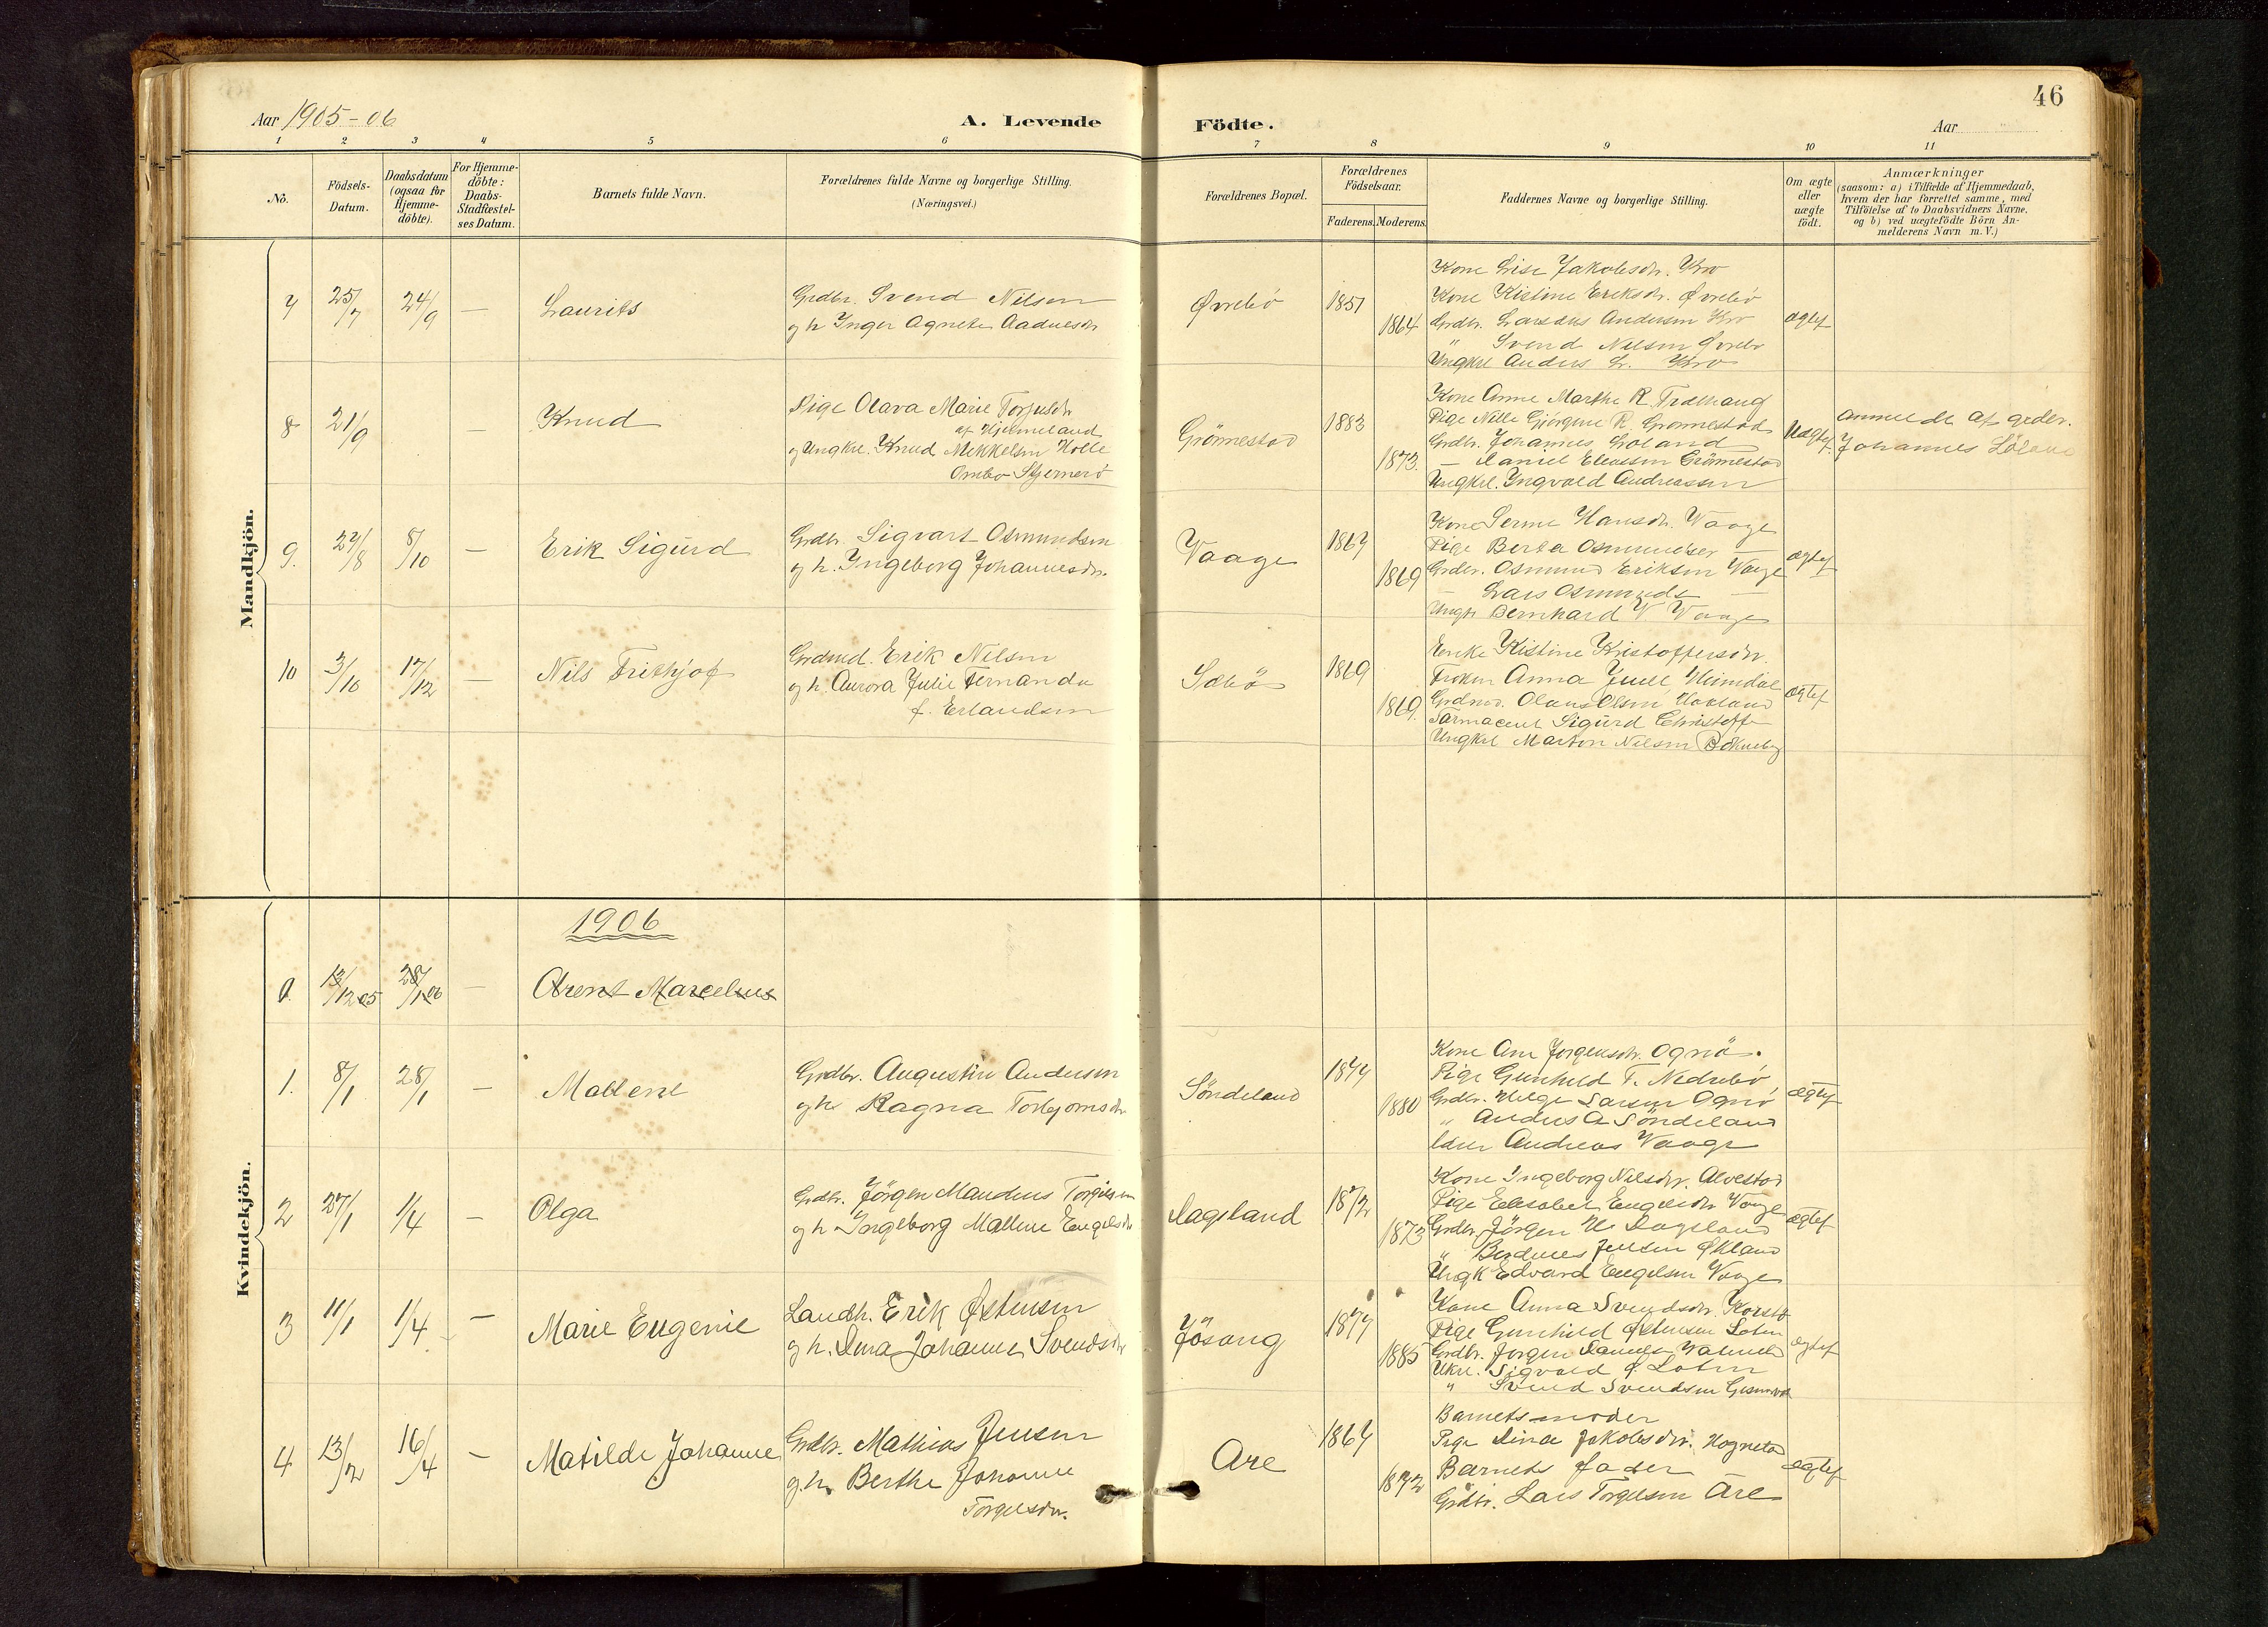 46
Aar 1905-06
A. Levende Födte.
Aar
1 2 3 4 5 6 7 8 9 10 11
No.
Födsels-Datum.
Daabsdatum (ogsaa for Hjemme-döbte).
For Hjemme-döbte: Daabs-Stadfæstel-ses Datum.
Barnets fulde Navn.
Forældrenes fulde Navne og borgerlige Stilling.
(Næringsvei.)
Forældrenes Bopæl.
Forældrenes Födselsaar.
Faderens. Moderens.
Faddernes Navne og borgerlige Stilling.
Om ægte eller uægte födt.
Anmærkninger
(saasom: a) i Tilfælde af Hjemmedaab,
hvem der har forrettet samme, med
Tilföielse af to Daabsvidners Navne.
og b) ved uægtefödte Börn An-
melderens Navn m. V.)
Mandkjön.
7 25/7 24/9 — Laurits
Grdbr. Svend Nilsen
og h Inger Agnete Aadnesdr
Øvrebö 1851 1864
Kone Lise Jakobsdr.
Kone Kistine Eriksdr. Øvrebö
Grdbr. Andersen
" Svend Nilsen Øvrebö
Ungkrl Anders L.
ægtef
8 21/9 — Knud
Pige Olava Marie Torjusdr
af Hjelmeland
og Ungkrl. Knud Mikkelsen Holle
Ombo Sjernerö
Grönnestad 1883 1873.
Kone Anne Marthe R.
Pige Nille Gjörgine R. Grönnestad
Grdbr. Johannes Löland
— Daniel Eliassen Grönnestad
Ungkrl. Ingvald Andreassen
Uægtef.
anmeldt af grdbr.
Johannes Löland
9. 27/8 8/10 — Erik Sigurd
Grdbr. Sigvart Osmundsen
og h. Ingeborg Johannesdr.
Vaage 1867 1869
Kone Serine Hansdr. Vaage
Pige Berta Osmundsdr —
Grdbr. Osmund Eriksen Vaage
— Lars Osmunds —
Ungk Bernhard V. Vaage
ægtef
10 3/10 17/12 — Nils Frithjof
Grdmd. Erik Nilsen
og h. Aurora Julie Fernanda
f. Erlandsen
Sæbö 1869 1869.
Enke Kistine Kristoffersdr.
Fröken Anna Juell
Grdmd. Olaus Olsen
Farmaceut Sigurd Christoff
Ungkrl Marton Nilsen
ægtef
Kvindekjön.
1906
13/12 05 28/1 06 — Arent Marcelius
1. 8/1 28/1 — Mallene
Grdbr. Augustin Andersen
og h Ragna Torbjörnsdr
Söndeland 1877 1880
Kone Ane Jörgensdr. Ognö.
Pige Gunhild T. Nedrebö
Grdbr. Helge Larsen Ognö
" Anders A Söndeland
Lærer Andreas Vaage
ægtef
2 27/1 1/4 — Olga
Grdbr. Jörgen Maudeus Torgilsen
og h Ingeborg Malene Engelsdr
Dagsland 1872 1873
Kone Ingeborg Nilsdr. Alvestad
Pige Elisabet Engelsdr Vaage
Grdbr. Jörgen H. Dagsland
" Berdines Jensen Økland
Ungk Edvard Engelsen Vaage
ægtef
3 11/1 1/4 — Marie Eugenie
Landh. Erik Østensen
og h. Dina Johanne Svendsdr
Jösang 1877 1885
Kone Anna Svendsdr.
Pige Gunhild Østensen
Grdbr. Jörgen
Ukrl. Sigvald Ø.
" Svend Svendsen
ægtef
4 13/2 16/4 — Matilde Johanne
Grdbr. Mathias Jensen
og h. Berthe Johanne
Torgelsdr.
Are 1867 1872
Barnets moder
Pige Dina Jakobsdr.
Barnets fader
Grdbr. Lars Torgelsen Are
ægtef